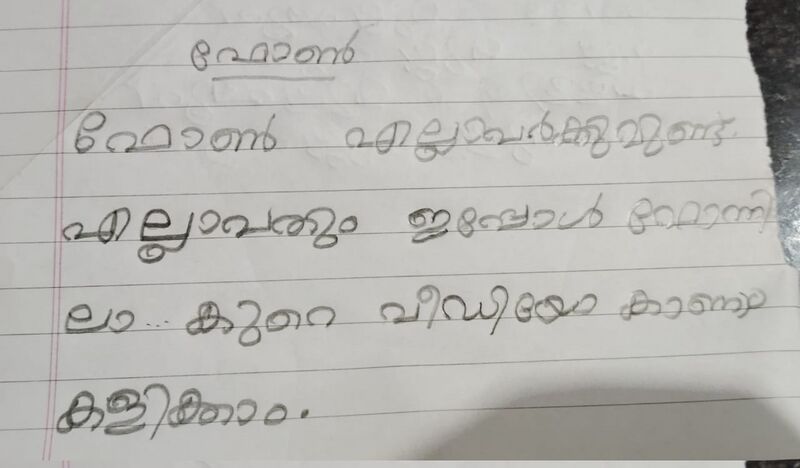 ഫോൺ
ഫോൺ എല്ലാവർക്കുമുണ്ട്.
എല്ലാവരും ഇപ്പോൾ ഫോണി
ലാ... കുറെ വീഡിയോ കാണാം
കളിക്കാം.